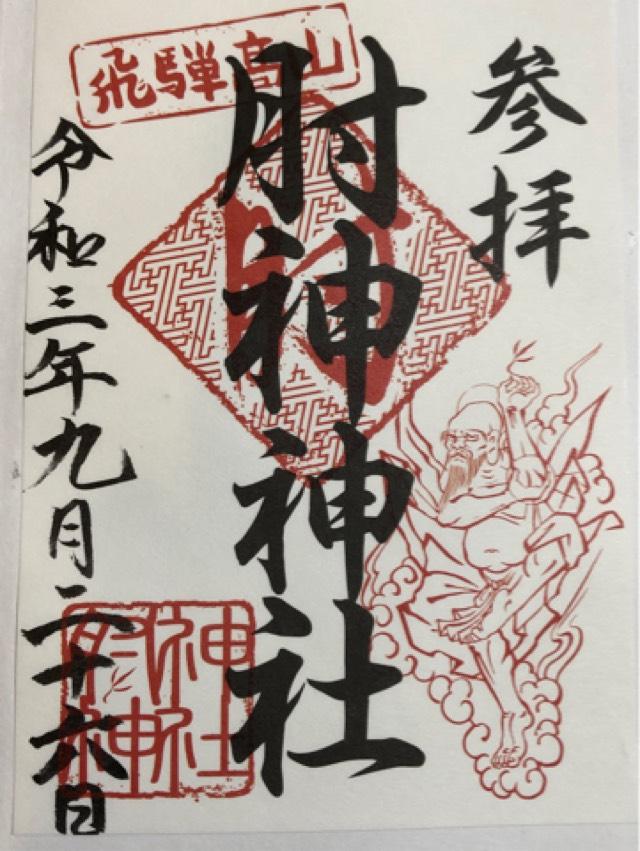 参拝
飛騨高山
肘神神社
令和三年九月二十六日
肘神
神社